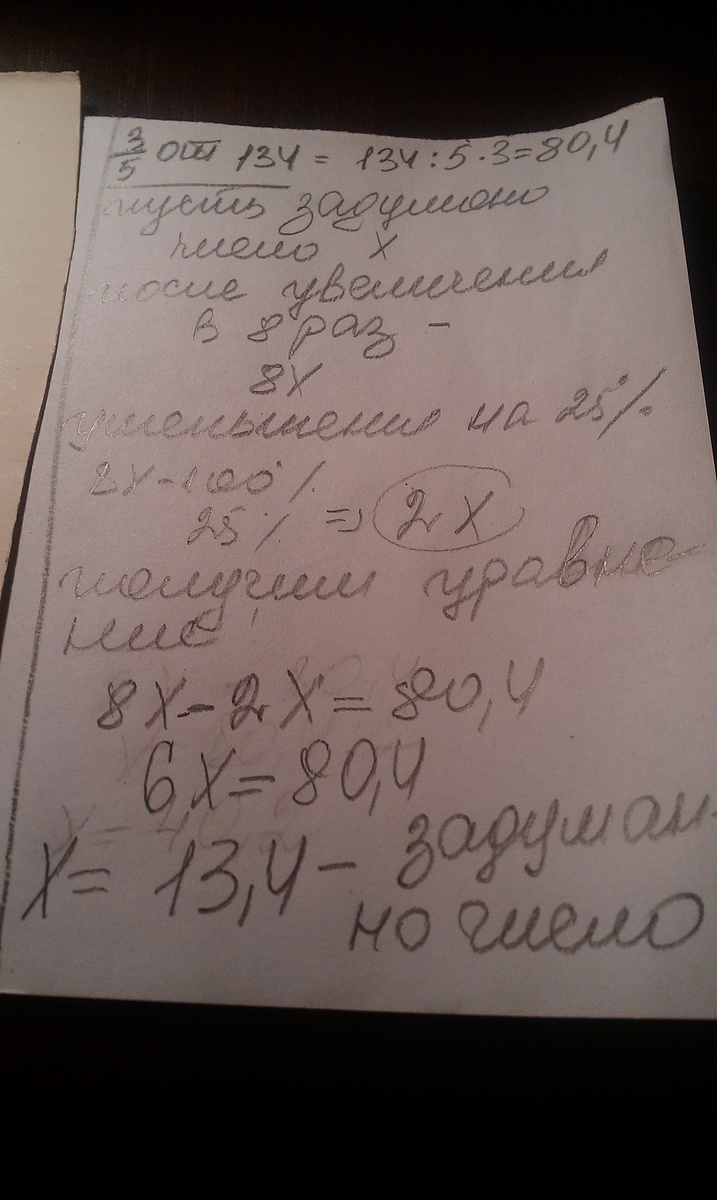 3/5 от 134 = 134 : 5 · 3 = 80,4
пусть задумано
число x
после увеличения
в 8 раз –
8x
уменьшения на 25%
8x - 100%
25% => 2x
получим уравне
ние:
8x - 2x = 80,4
6x = 80,4
x = 13,4 – задуман-
но число